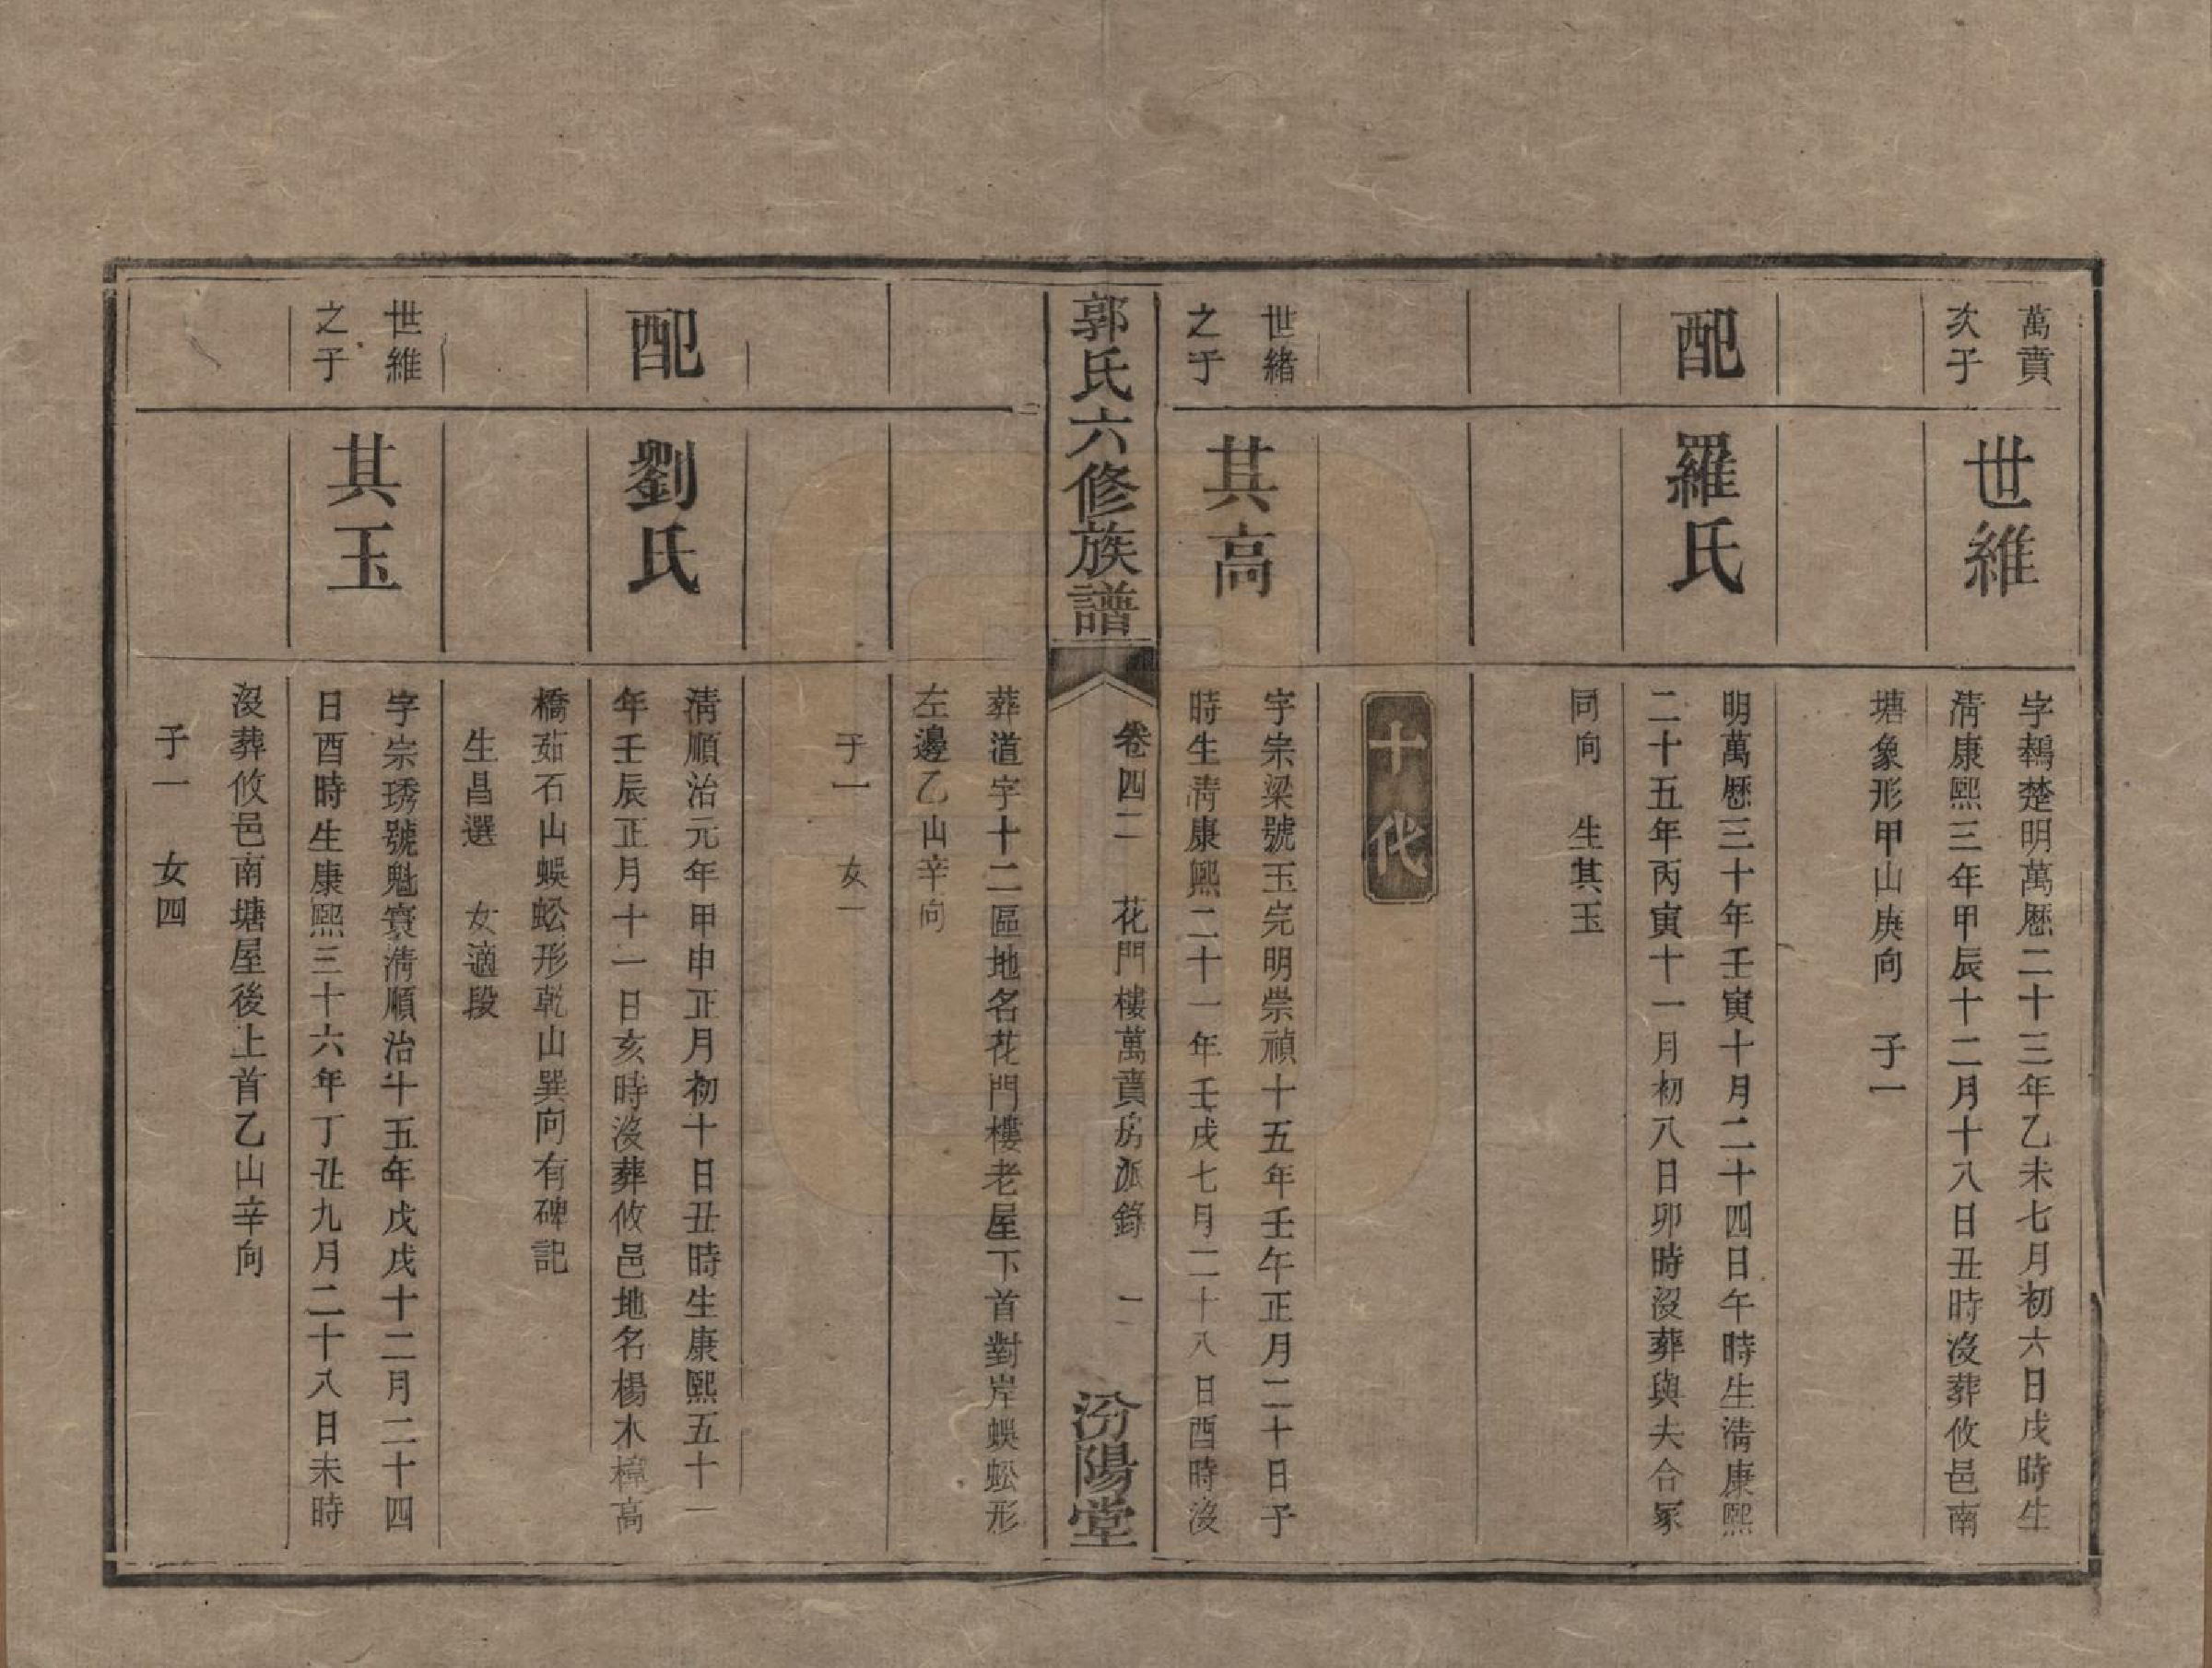 萬賁
次子
世維
字鶈楚明萬歷二十三年乙未七月初六日戌時生
清康熙三年甲辰十二月十八日丑時沒葬攸邑南
塘象形甲山庚向　子一
配
羅氏
明萬歷三十年壬寅十月二十四日午時生清康熙
二十五年丙寅十一月初八日卯時沒葬與夫合冢
同向　生其玉
十代
世緒
之子
其高
字宗梁號玉完明崇禎十五年壬午正月二十日子
時生清康熙二十一年壬戌七月二十八日酉時沒
郭氏六修族譜
卷四二　花門樓萬賁房派錄　一
汾陽堂
葬道字十二區地名花門樓老屋下首對岸蜈蚣形
左邊乙山辛向
子一　女一
配
劉氏
清順治元年甲申正月初十日丑時生康熙五十一
年壬辰正月十一日亥時沒葬攸邑地名楊木樟高
橋茹石山蜈蚣形乾山巽向有碑記
生昌選　女適段
世維
之子
其玉
字宗琇號魁寰清順治十五年戊戌十二月二十四
日酉時生康熙三十六年丁丑九月二十八日未時
沒葬攸邑南塘屋後上首乙山辛向
子一　女四